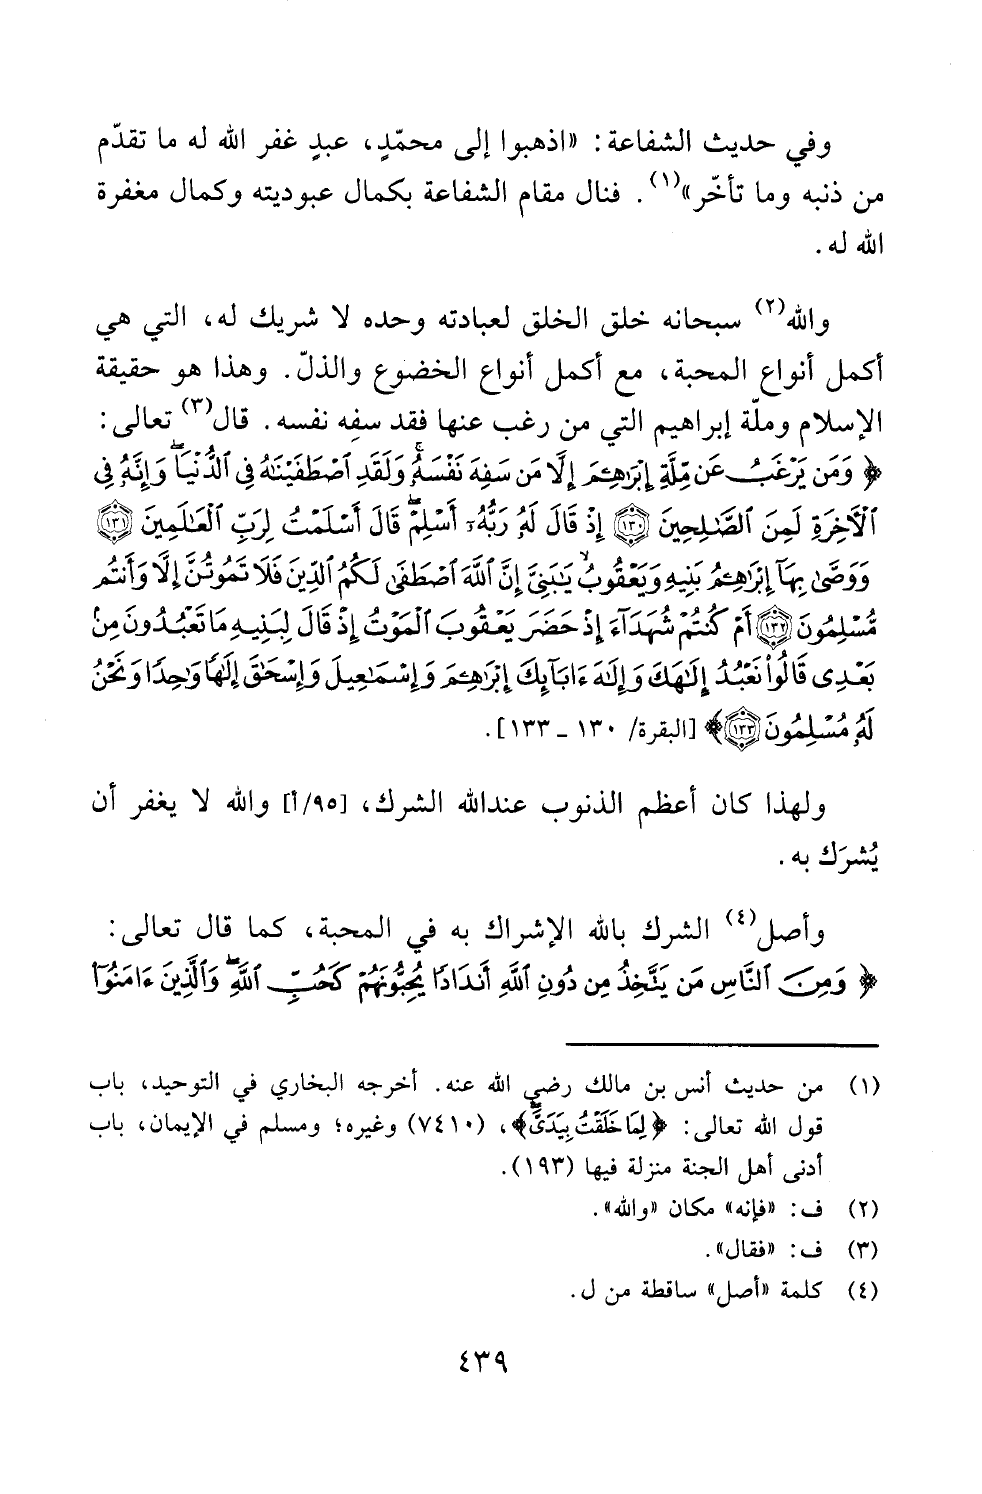 وفي حديث الشفاعة: «اذهبوا إلى محمّدٍ، عبدٍ غفر الله له ما تقدّم
من ذنبه وما تأخّر»(١). فنال مقام الشفاعة بكمال عبوديته وكمال مغفرة
الله له.
والله(٢) سبحانه خلق الخلق لعبادته وحده لا شريك له، التي هي
أكمل أنواع المحبة، مع أكمل أنواع الخضوع والذلّ. وهذا هو حقيقة
الإسلام وملّة إبراهيم التي من رغب عنها فقد سفِه نفسه. قال(٣) تعالى:
﴿ وَمَن يَرْغَبُ عَن مِّلَّةِ إِبْرَٰهِـۧمَ إِلَّا مَن سَفِهَ نَفْسَهُۥۚ وَلَقَدِ ٱصْطَفَيْنَـٰهُ فِى ٱلدُّنْيَاۖ وَإِنَّهُۥ فِى
ٱلْـَٔاخِرَةِ لَمِنَ ٱلصَّـٰلِحِينَ ۝١٣٠ إِذْ قَالَ لَهُۥ رَبُّهُۥٓ أَسْلِمْۖ قَالَ أَسْلَمْتُ لِرَبِّ ٱلْعَـٰلَمِينَ ۝١٣١
وَوَصَّىٰ بِهَآ إِبْرَٰهِـۧمُ بَنِيهِ وَيَعْقُوبُ يَـٰبَنِىَّ إِنَّ ٱللَّهَ ٱصْطَفَىٰ لَكُمُ ٱلدِّينَ فَلَا تَمُوتُنَّ إِلَّا وَأَنتُم
مُّسْلِمُونَ ۝١٣٢ أَمْ كُنتُمْ شُهَدَآءَ إِذْ حَضَرَ يَعْقُوبَ ٱلْمَوْتُ إِذْ قَالَ لِبَنِيهِ مَا تَعْبُدُونَ مِنۢ
بَعْدِى قَالُوا۟ نَعْبُدُ إِلَـٰهَكَ وَإِلَـٰهَ ءَابَآئِكَ إِبْرَٰهِـۧمَ وَإِسْمَـٰعِيلَ وَإِسْحَـٰقَ إِلَـٰهًا وَٰحِدًا وَنَحْنُ
لَهُۥ مُسْلِمُونَ ۝١٣٣﴾ [البقرة/ ١٣٠ - ١٣٣].
ولهذا كان أعظم الذنوب عندالله الشرك، [٩٥/أ] والله لا يغفر أن
يُشرَك به.
وأصل(٤) الشرك بالله الإشراك به في المحبة، كما قال تعالى:
﴿ وَمِنَ ٱلنَّاسِ مَن يَتَّخِذُ مِن دُونِ ٱللَّهِ أَندَادًا يُحِبُّونَهُمْ كَحُبِّ ٱللَّهِۖ وَٱلَّذِينَ ءَامَنُوٓا۟
(١) من حديث أنس بن مالك رضي الله عنه. أخرجه البخاري في التوحيد، باب
قول الله تعالى: ﴿لِمَا خَلَقْتُ بِيَدَىَّۖ﴾، (٧٤١٠) وغيره؛ ومسلم في الإيمان، باب
أدنى أهل الجنة منزلة فيها (١٩٣).
(٢) ف: «فإنه» مكان «والله».
(٣) ف: «فقال».
(٤) كلمة «أصل» ساقطة من ل.
٤٣٩